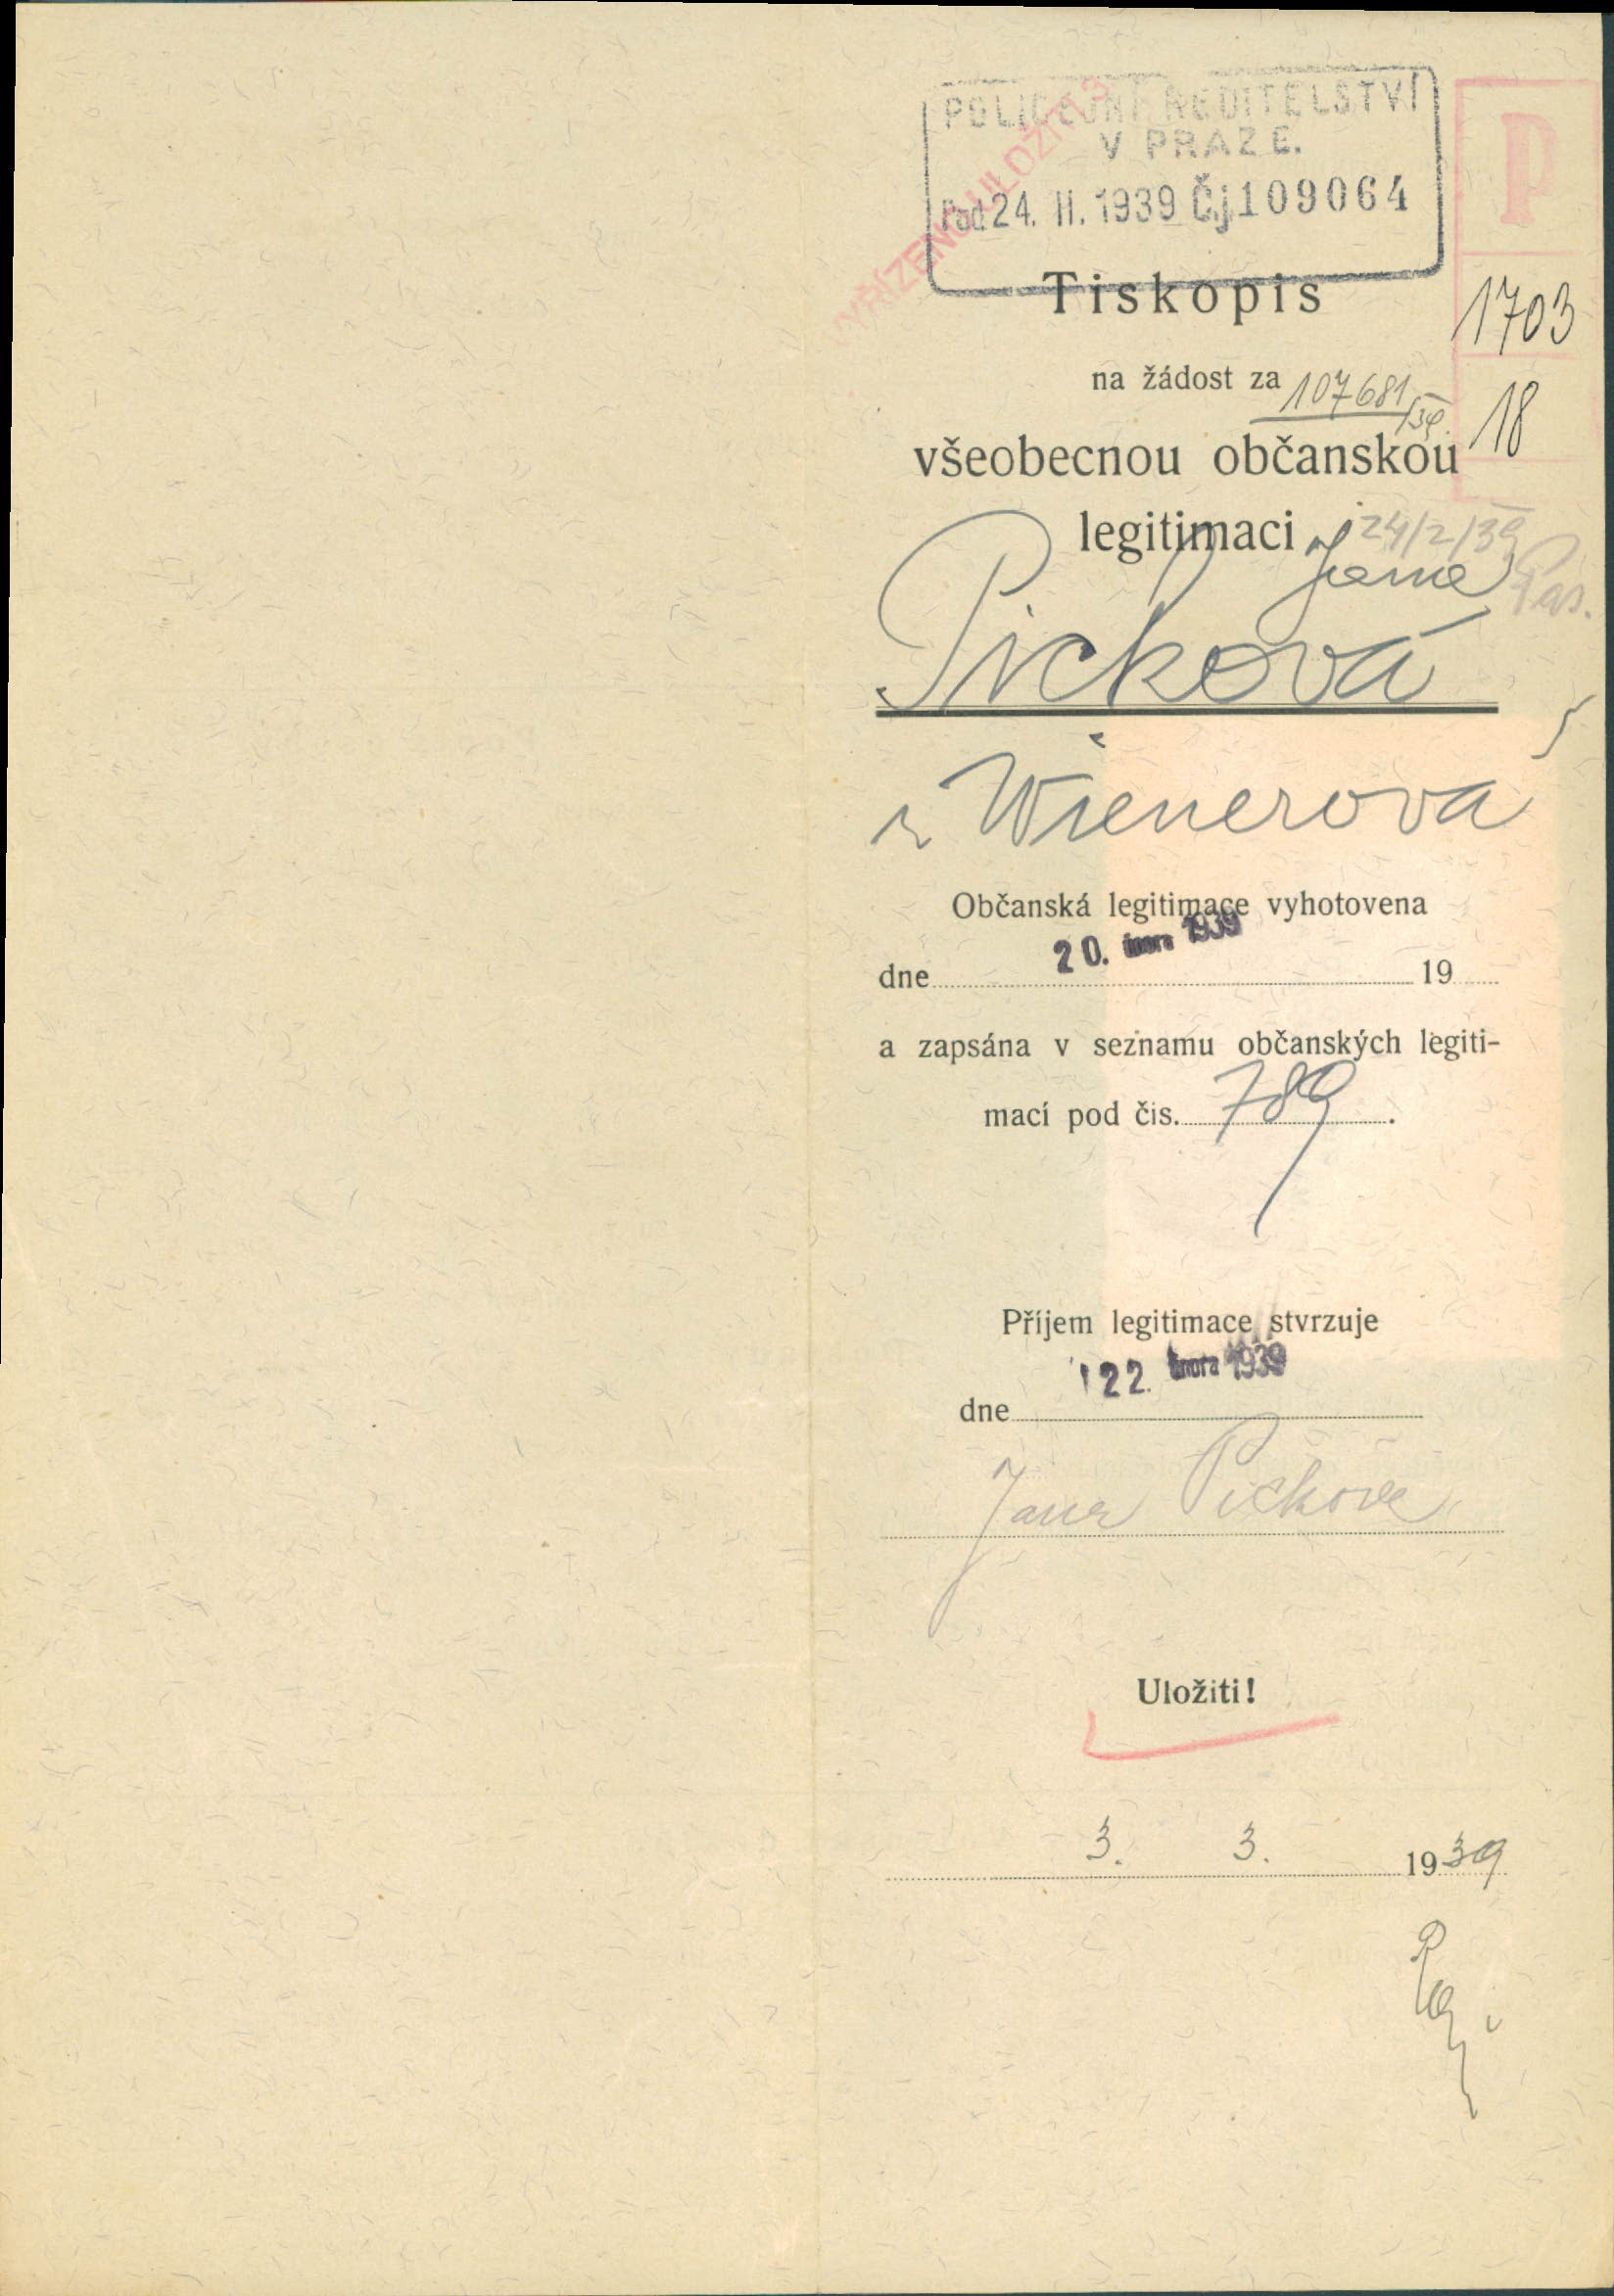 POLICEJNÍ ŘEDITELSTVÍ
V PRAZE.
Pod 24. II. 1939 Čj 109064
P
VYŘÍZENO ULOŽITI 3
Tiskopis
1703
na žádost za 107681/39.
18
všeobecnou občanskou
legitimaci
24/2/39
Jana
Pas.
Picková
r. Wienerova
Občanská legitimace vyhotovena
20. února 1939
dne 19
a zapsána v seznamu občanských legiti-
mací pod čis. 789.
Příjem legitimace stvrzuje
22. února 1939
dne
Jana Picková
Uložiti!
3. 3. 1939